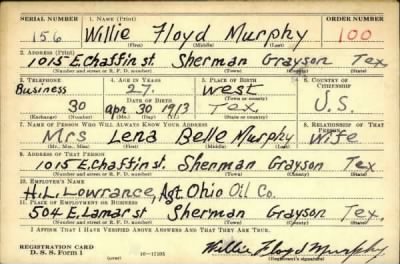 SERIAL NUMBER 1. NAME (Print) ORDER NUMBER
156 Willie Floyd Murphy 100
(First) (Middle) (Last)
2. ADDRESS (Print)
1015 E. Chaffin st. Sherman Grayson Tex
(Number and street or R. F. D. number) (Town) (County) (State)
3. TELEPHONE 4. AGE IN YEARS 5. PLACE OF BIRTH 6. COUNTRY OF CITIZENSHIP
Business 27. West
DATE OF BIRTH (Town or county)
30 apr 30 1913 Tex. U.S.
(Exchange) (Number) (Mo.) (Day) (Yr.) (State or country)
7. NAME OF PERSON WHO WILL ALWAYS KNOW YOUR ADDRESS 8. RELATIONSHIP OF THAT PERSON
Mrs Lena Belle Murphy Wife
(Mr., Mrs., Miss) (First) (Middle) (Last)
9. ADDRESS OF THAT PERSON
1015 E. Chaffin st. Sherman Grayson Tex
(Number and street or R. F. D. number) (Town) (County) (State)
10. EMPLOYER'S NAME
H.L. Lowrance, Agt. Ohio Oil Co.
11. PLACE OF EMPLOYMENT OR BUSINESS
504 E. Lamar st Sherman Grayson Tex.
(Number and street or R. F. D. number) (Town) (County) (State)
I AFFIRM THAT I HAVE VERIFIED ABOVE ANSWERS AND THAT THEY ARE TRUE.
REGISTRATION CARD
D. S. S. Form 1 (over) Willie Floyd Murphy